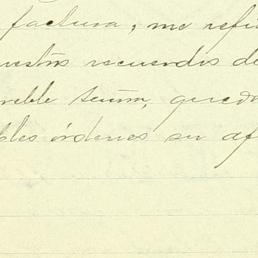 factura, me refi
uestros recuerdos de
reble señora, queda
bles órdenes su af